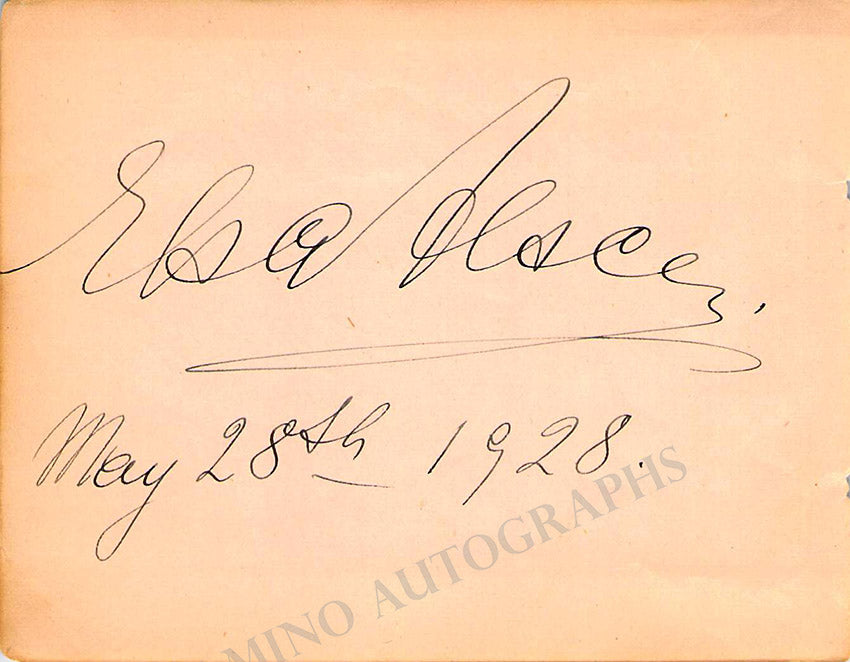 Elsa Alsen.
May 28th 1928.
MINO AUTOGRAPHS